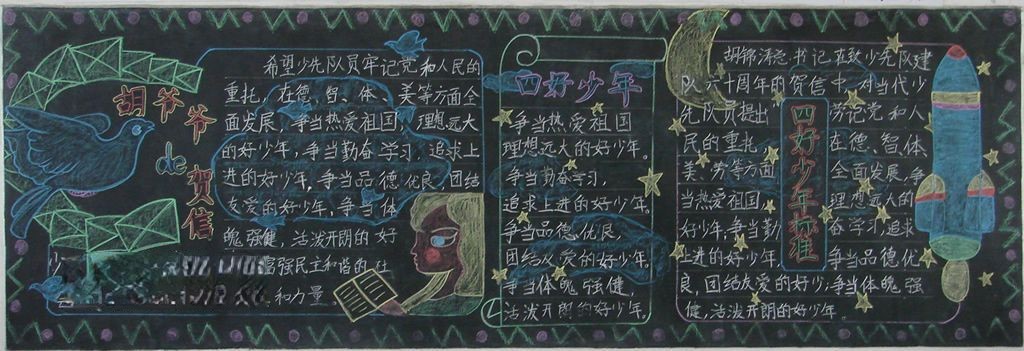 胡爷爷的贺信
希望少先队员牢记党和人民的
重托，在德、智、体、美等方面全
面发展，争当热爱祖国，理想远大
的好少年，争当勤奋学习，追求上
进的好少年，争当品德优良，团结
友爱的好少年，争当体
魄强健，活泼开朗的好
少
富强民主和谐的社
和力量
四好少年
争当热爱祖国
理想远大的好少年。
争当勤奋学习，
追求上进的好少年。
争当品德优良，
团结友爱的好少年。
争当体魄强健，
活泼开朗的好少年
四好少年标准
胡锦涛总书记在致少先队建
队六十周年的贺信中，对当代少
先队员提出 劳记党和人
民的重托， 在德、智、体
美、劳等方面 全面发展，争
当热爱祖国， 理想远大的
好少年，争当勤 奋学习，追求
上进的好少年， 争当品德优
良，团结友爱的好少年，争当体魄强
健，活泼开朗的好少年。